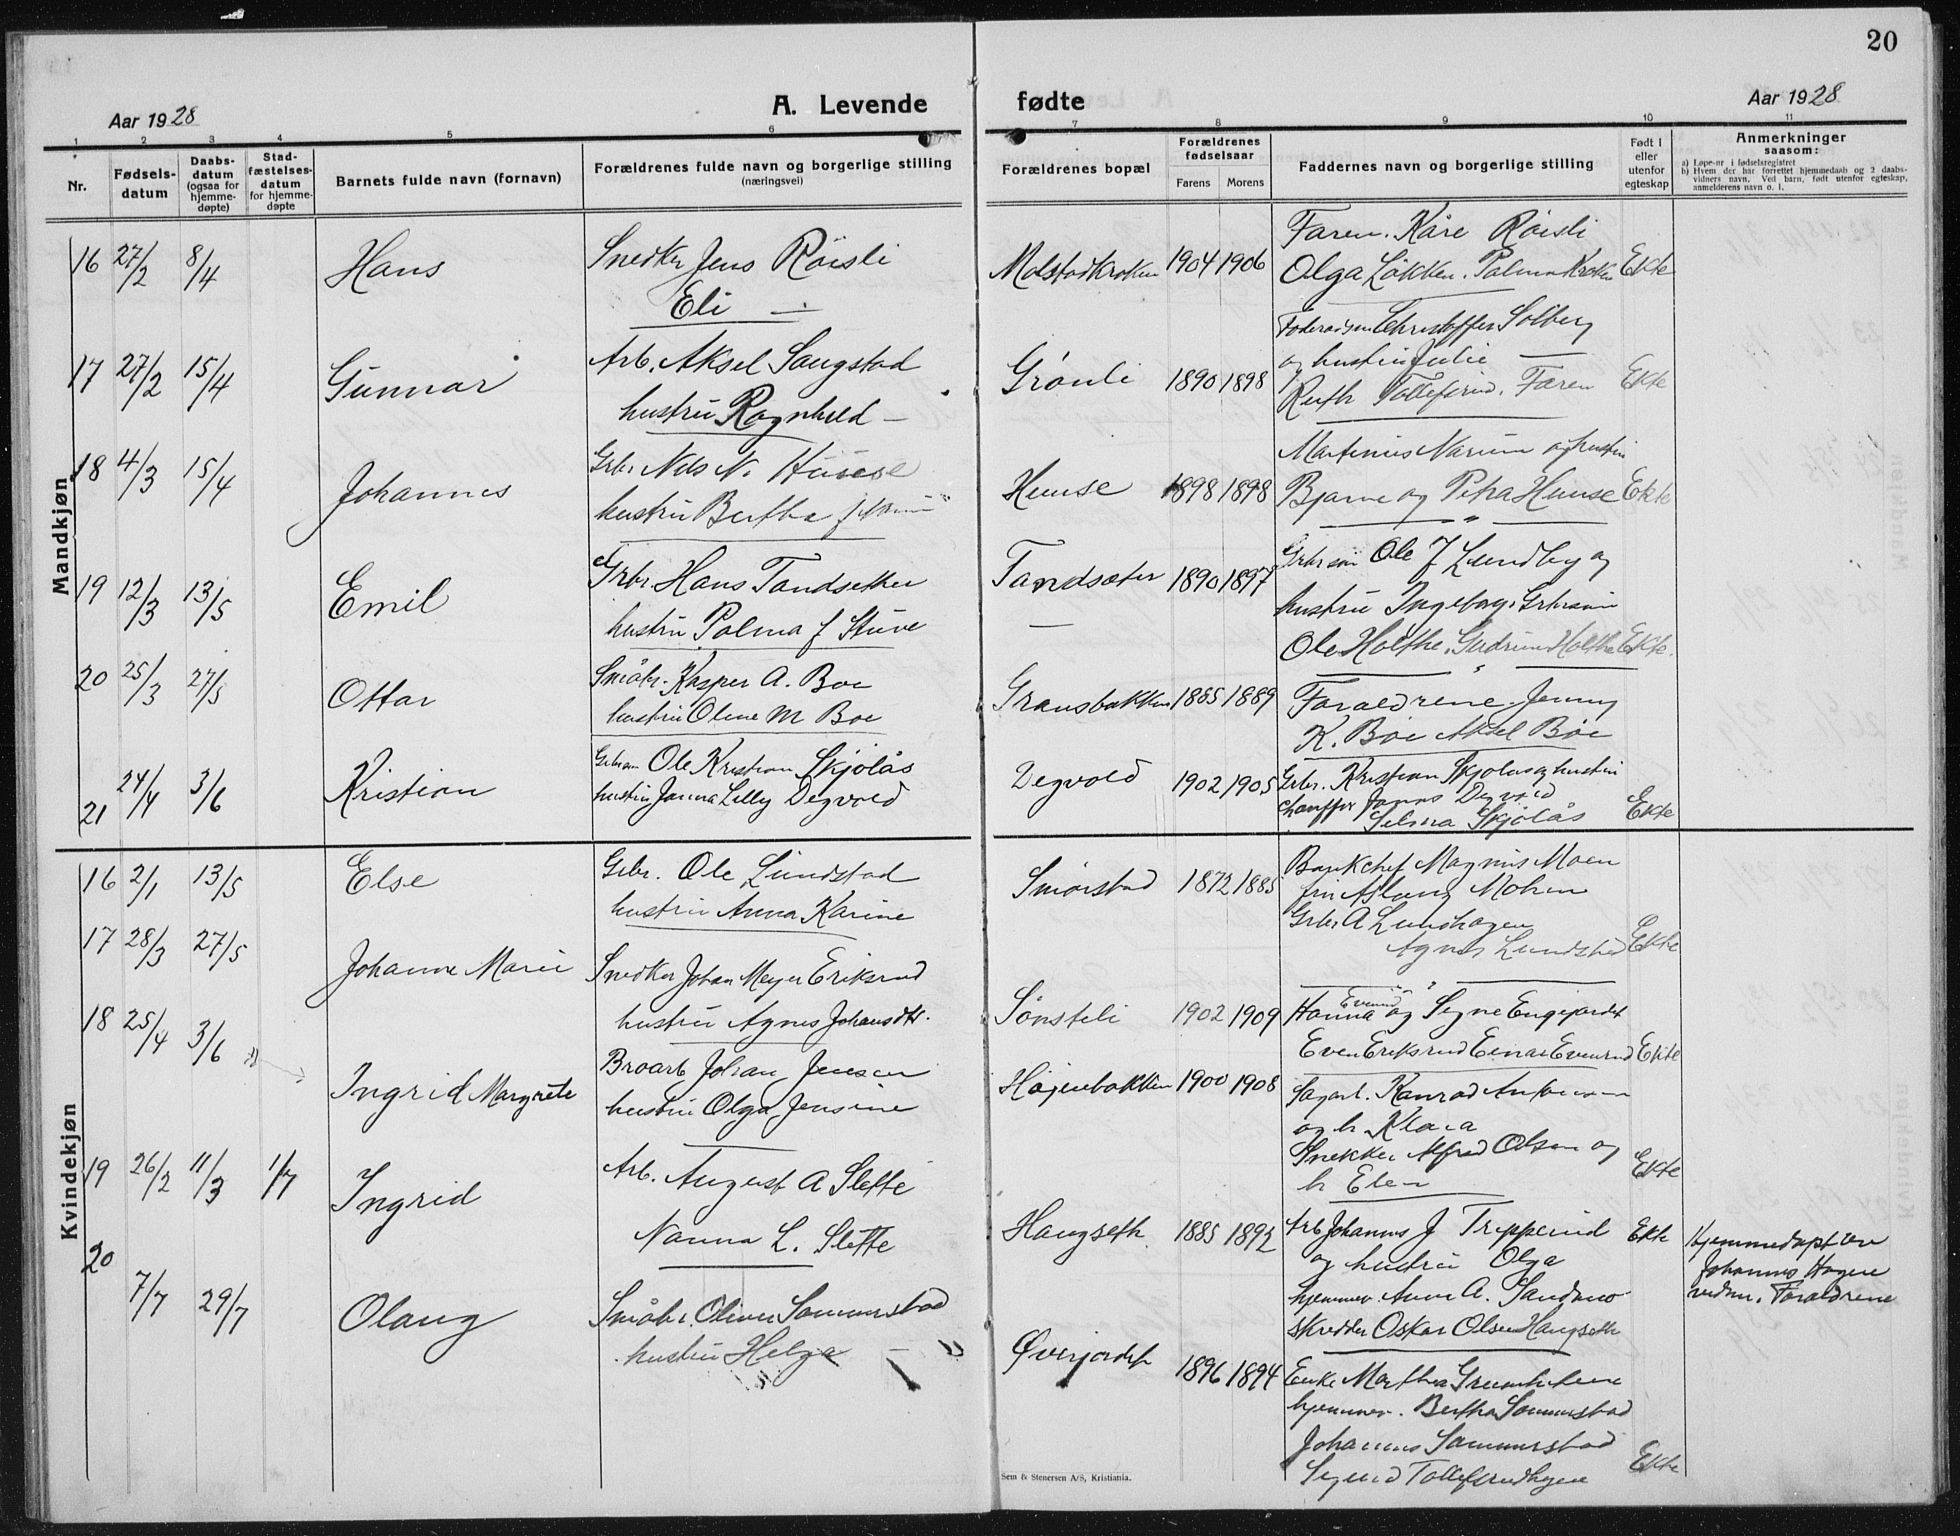 20
Aar 1928
A. Levende
fødte
Aar 1928
1 2 3 4 5 6 7 8 9 10 11
Nr.
Fødsels-
datum
Daabs-
datum
(ogsaa for
hjemme-
døpte)
Stad-
fæstelses-
datum
for hjemme-
døpte
Barnets fulde navn (fornavn)
Forældrenes fulde navn og borgerlige stilling
(næringsvei)
Forældrenes bopæl
Forældrenes
fødselsaar
Farens Morens
Faddernes navn og borgerlige stilling
Født i
eller
utenfor
egteskap
Anmerkninger
saasom:
a) Løpe-nr i fødselsregistret
b) Hvem der har forrettet hjemmedaab og 2 daabs-
vidners navn. Ved barn, født utenfor egteskap,
anmelderens navn o. l.
Mandkjøn
16 27/2 8/4 Hans
Snedker Jens Röisli
Eli —
Molstadkroken 1904 1906
Faren. Kåre Röisli
Olga Løkken. Palma Kroken Ekte
17 27/2 15/4 Gunnar
Arb. Aksel Sangstad
hustru Ragnhild —
Grønli 1890 1898
Christoffer Solberg
og hustru Julie —
Ruth Tollefsrud. Faren Ekte
18 4/3 15/4 Johannes
Grbr Nils N. Hunse
hustru Bertha f
Hunse 1898 1898
Martinius Narum og hustru
Bjarne og Petra Hunse Ekte
19 12/3 13/5 Emil
Grbr. Hans Tandsether
hustru Palma f Stuve
Tandsæter 1890 1897
Grbrsøn Ole J Lundby og
hustru Ingeborg. Grbrsøn
Ole Holthe. Gudrun Holthe Ekte.
20 25/3 27/5 Ottar
Småbr. Kasper A. Boe
hustru Oline M Boe
Gransbakken 1885 1889
Foraldrene. Jenny
K. Böe Aksel Böe
21 24/4 3/6 Kristian
Grbrsøn Ole Kristian Skjölås
hustru Janna Lilly Degvold
Degvold 1902 1905
Grbr. Kristian Skjolas og hustru
chauffør Degvold
Selma Skjölås Ekte
Kvindekjøn
16 2/1 13/5 Else
Grbr. Ole Lundstad
hustru Anna Karine
Smørstad 1872 1885
Bankchef Magnus Moen
fru Aslaug Mohn
Grbr A Lundhagen
Agnes Lundstad Ekte
17 28/3 27/5 Johanne Marie
Snedker Johan Meyer Eriksrud
hustru Agnes Johansdtr.
Sønsteli 1902 1909
Hanna og Signe Engejordet
Even Eriksrud Einar Evenrud Ekte
18 25/4 3/6 Ingrid Margrete
Broarb Johan Jensen
hustru Olga Jensine
Højenbakken 1900 1908
Sagarb. Konrad
og h. Klara
Snekker Alfred Olsen og
h Elen Ekte
19 26/2 11/3 1/7 Ingrid
Arb. August A Slette
Nanna L. Slette
Haugseth 1885 1892
Arb Johannes J Tripperud
og hustru Olga
hjemmev. Anna A. Sandmo
skredder Oskar Olsen Haugseth
Ekte
Hjemmedøpt av
Johannes Hagen
vidn. Foraldrene
20 7/7 29/7 Olaug
Småbr. Oliver Sommerstad
hustru Helga — "
Øverjordet 1896 1894
Enke Marthea
hjemmev. Bertha Sommerstad
Johannes Sommerstad
Sigurd Tollefsrudhagen Ekte
Sem & Stenersen A/S, Kristiania.